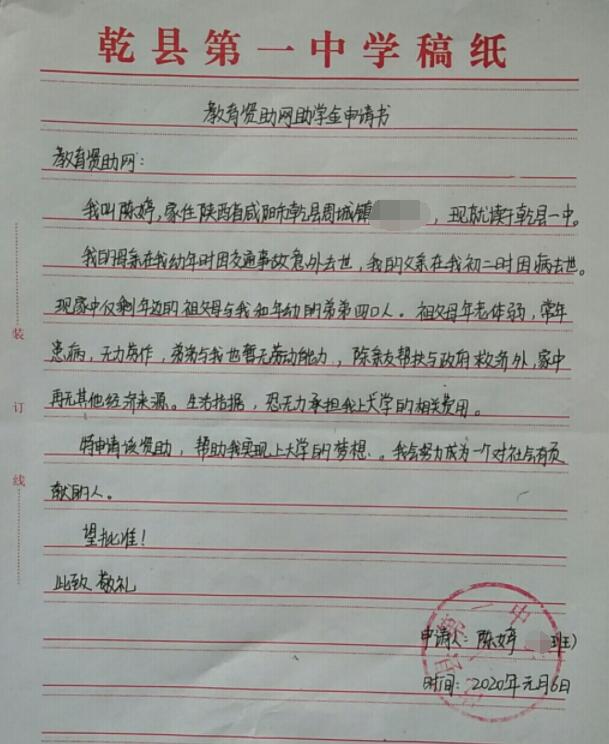 乾县第一中学稿纸
教育资助网助学金申请书
教育资助网：
我叫陈婷，家住陕西省咸阳市乾县周城镇，现就读于乾县一中。
我的母亲在我幼年时因交通事故意外去世，我的父亲在我初二时因病去世。
现家中仅剩年迈的祖父母与我和年幼的弟弟四口人。祖父母年老体弱，常年
患病，无力劳作，弟弟与我也暂无劳动能力，除亲友帮扶与政府救济外，家中
再无其他经济来源。生活拮据，恐无力承担我上大学的相关费用。
特申请该资助，帮助我实现上大学的梦想。我会努力成为一个对社会有贡
献的人。
望批准！
此致 敬礼
申请人：陈婷 班）
时间：2020年元月6日
装
订
线